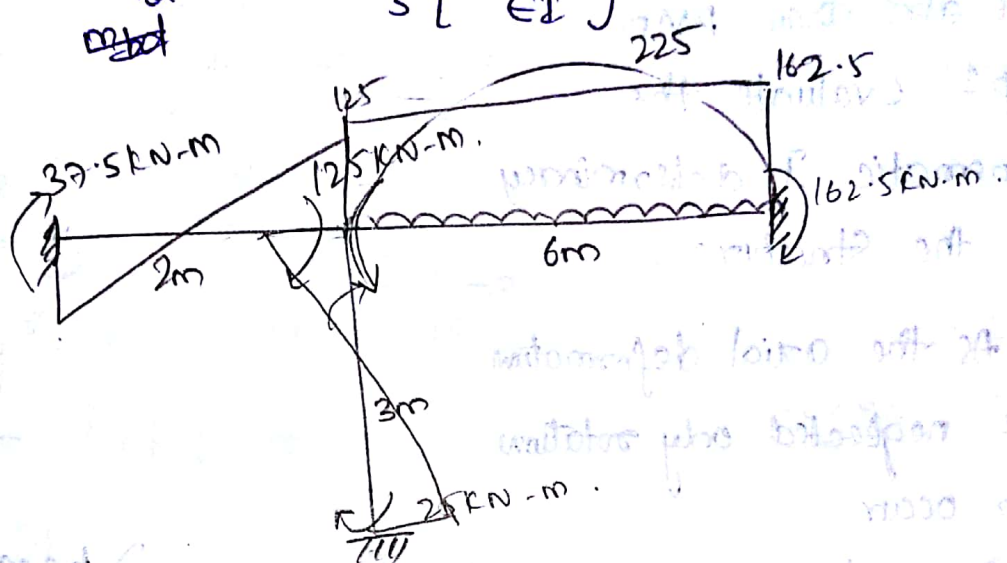 3 [ EI ]
225
162.5
125
37.5KN-m
125KN-m.
162.5KN.m.
2m
6m
3m
25KN-m.